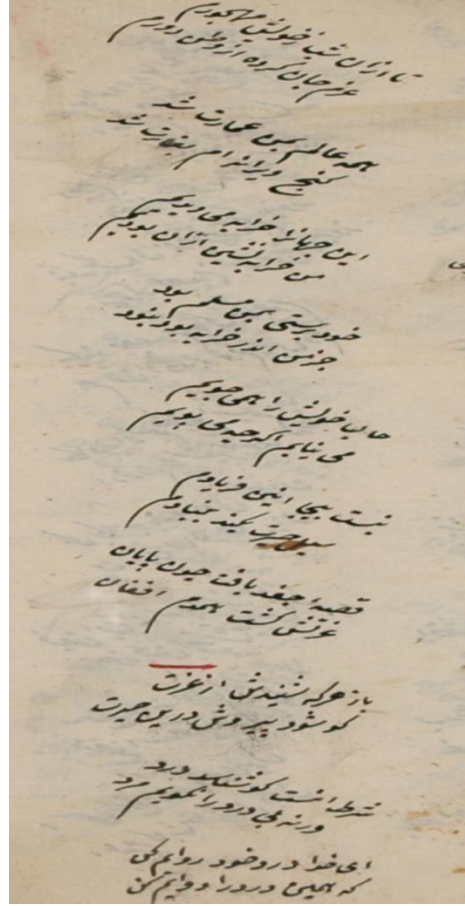 تا ازان شب ز خویش مهجورم
عزم جان کرده از وطن دورم
همه عالم بمن عمارت شد
گنج ویرانه ام بغارت شد
این جهانرا خرابه می دیدم
من خرابه نشین ازان بودم
خود پرستی بمن مسلم بود
جز من اندر خرابه بود نبود
حالیا خویش را همی جویم
می نیابم اگرچه می پویم
نیست بیجا انین فریادم
سیل حیرت بکند بنیادم
قصهٔ جغد یافت چون پایان
عزتش گشت همدم افغان
باز هرکه شنیدش از عزت
کو شود پیروش درین حیرت
شرط آنست کو شناسد درد
ورنه بی درد را نگویم مرد
ای خدا درد خود روایم کن
که همین درد را دوایم کن